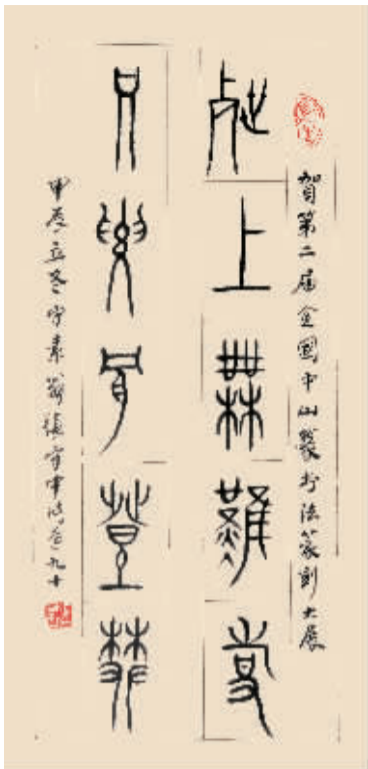 賀第二屆全國中山篆書法篆刻大展
世上無難事
只要肯登攀
甲辰立冬守素翁張守中時年九十